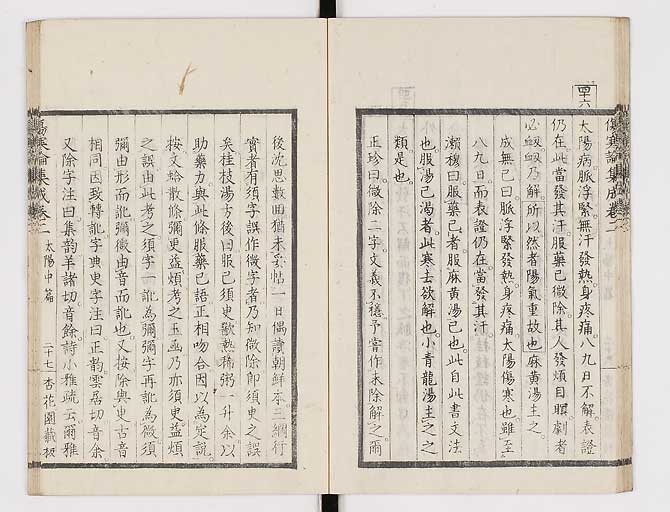 四十六
太陽病脈浮緊無汗發熱身疼痛八九日不解表證
仍在此當發其汗服藥已微除其人發煩目瞑劇者
必衂衂乃解所以然者陽氣重故也麻黄湯主之
成無己曰脈浮緊發熱身疼痛太陽傷寒也雖至
八九日而表證仍在當發其汗
瀨穆曰服藥已者服麻黄湯已也此自此書文法
也服湯已渴者此寒去欲解也小青龍湯主之之
類是也
正珍曰微除二字文義不穩予嘗作未除解之爾
傷寒論集成卷二
後沈思數回猶未妥帖一日偶讀朝鮮本三綱行
實者有須字誤作微字者乃知微除即須臾之誤
矣桂枝湯方後曰服已須臾歠熱稀粥一升余以
助藥力與此條服藥已語正相吻合因以為定說
按文蛤散條彌更益煩考之玉函乃亦須臾益煩
之誤由此考之須字一訛為彌彌字再訛為微須
彌由形而訛彌微由音而訛也又按除與臾古音
相同因致轉訛字典臾字注曰正韵雲居切音余
又除字注曰集韵羊諸切音餘詩小雅疏云爾雅
傷寒論集成卷二 太陽中篇 二十七 杏花園藏板